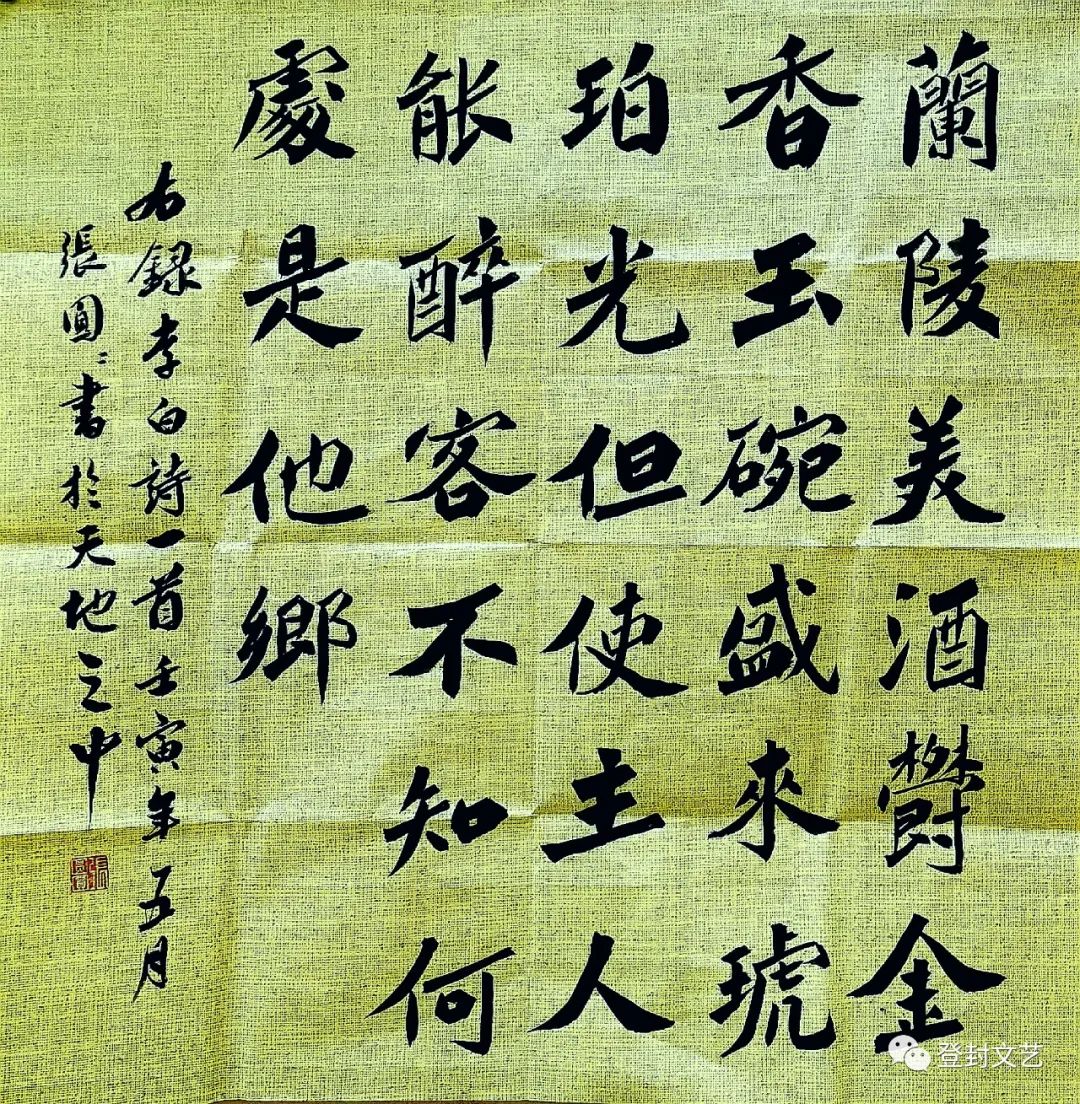 蘭陵美酒鬱金
香玉碗盛來琥
珀光但使主人
能醉客不知何
處是他鄉
右錄李白詩一首壬寅年五月
張圓〻書於天地之中
登封文艺